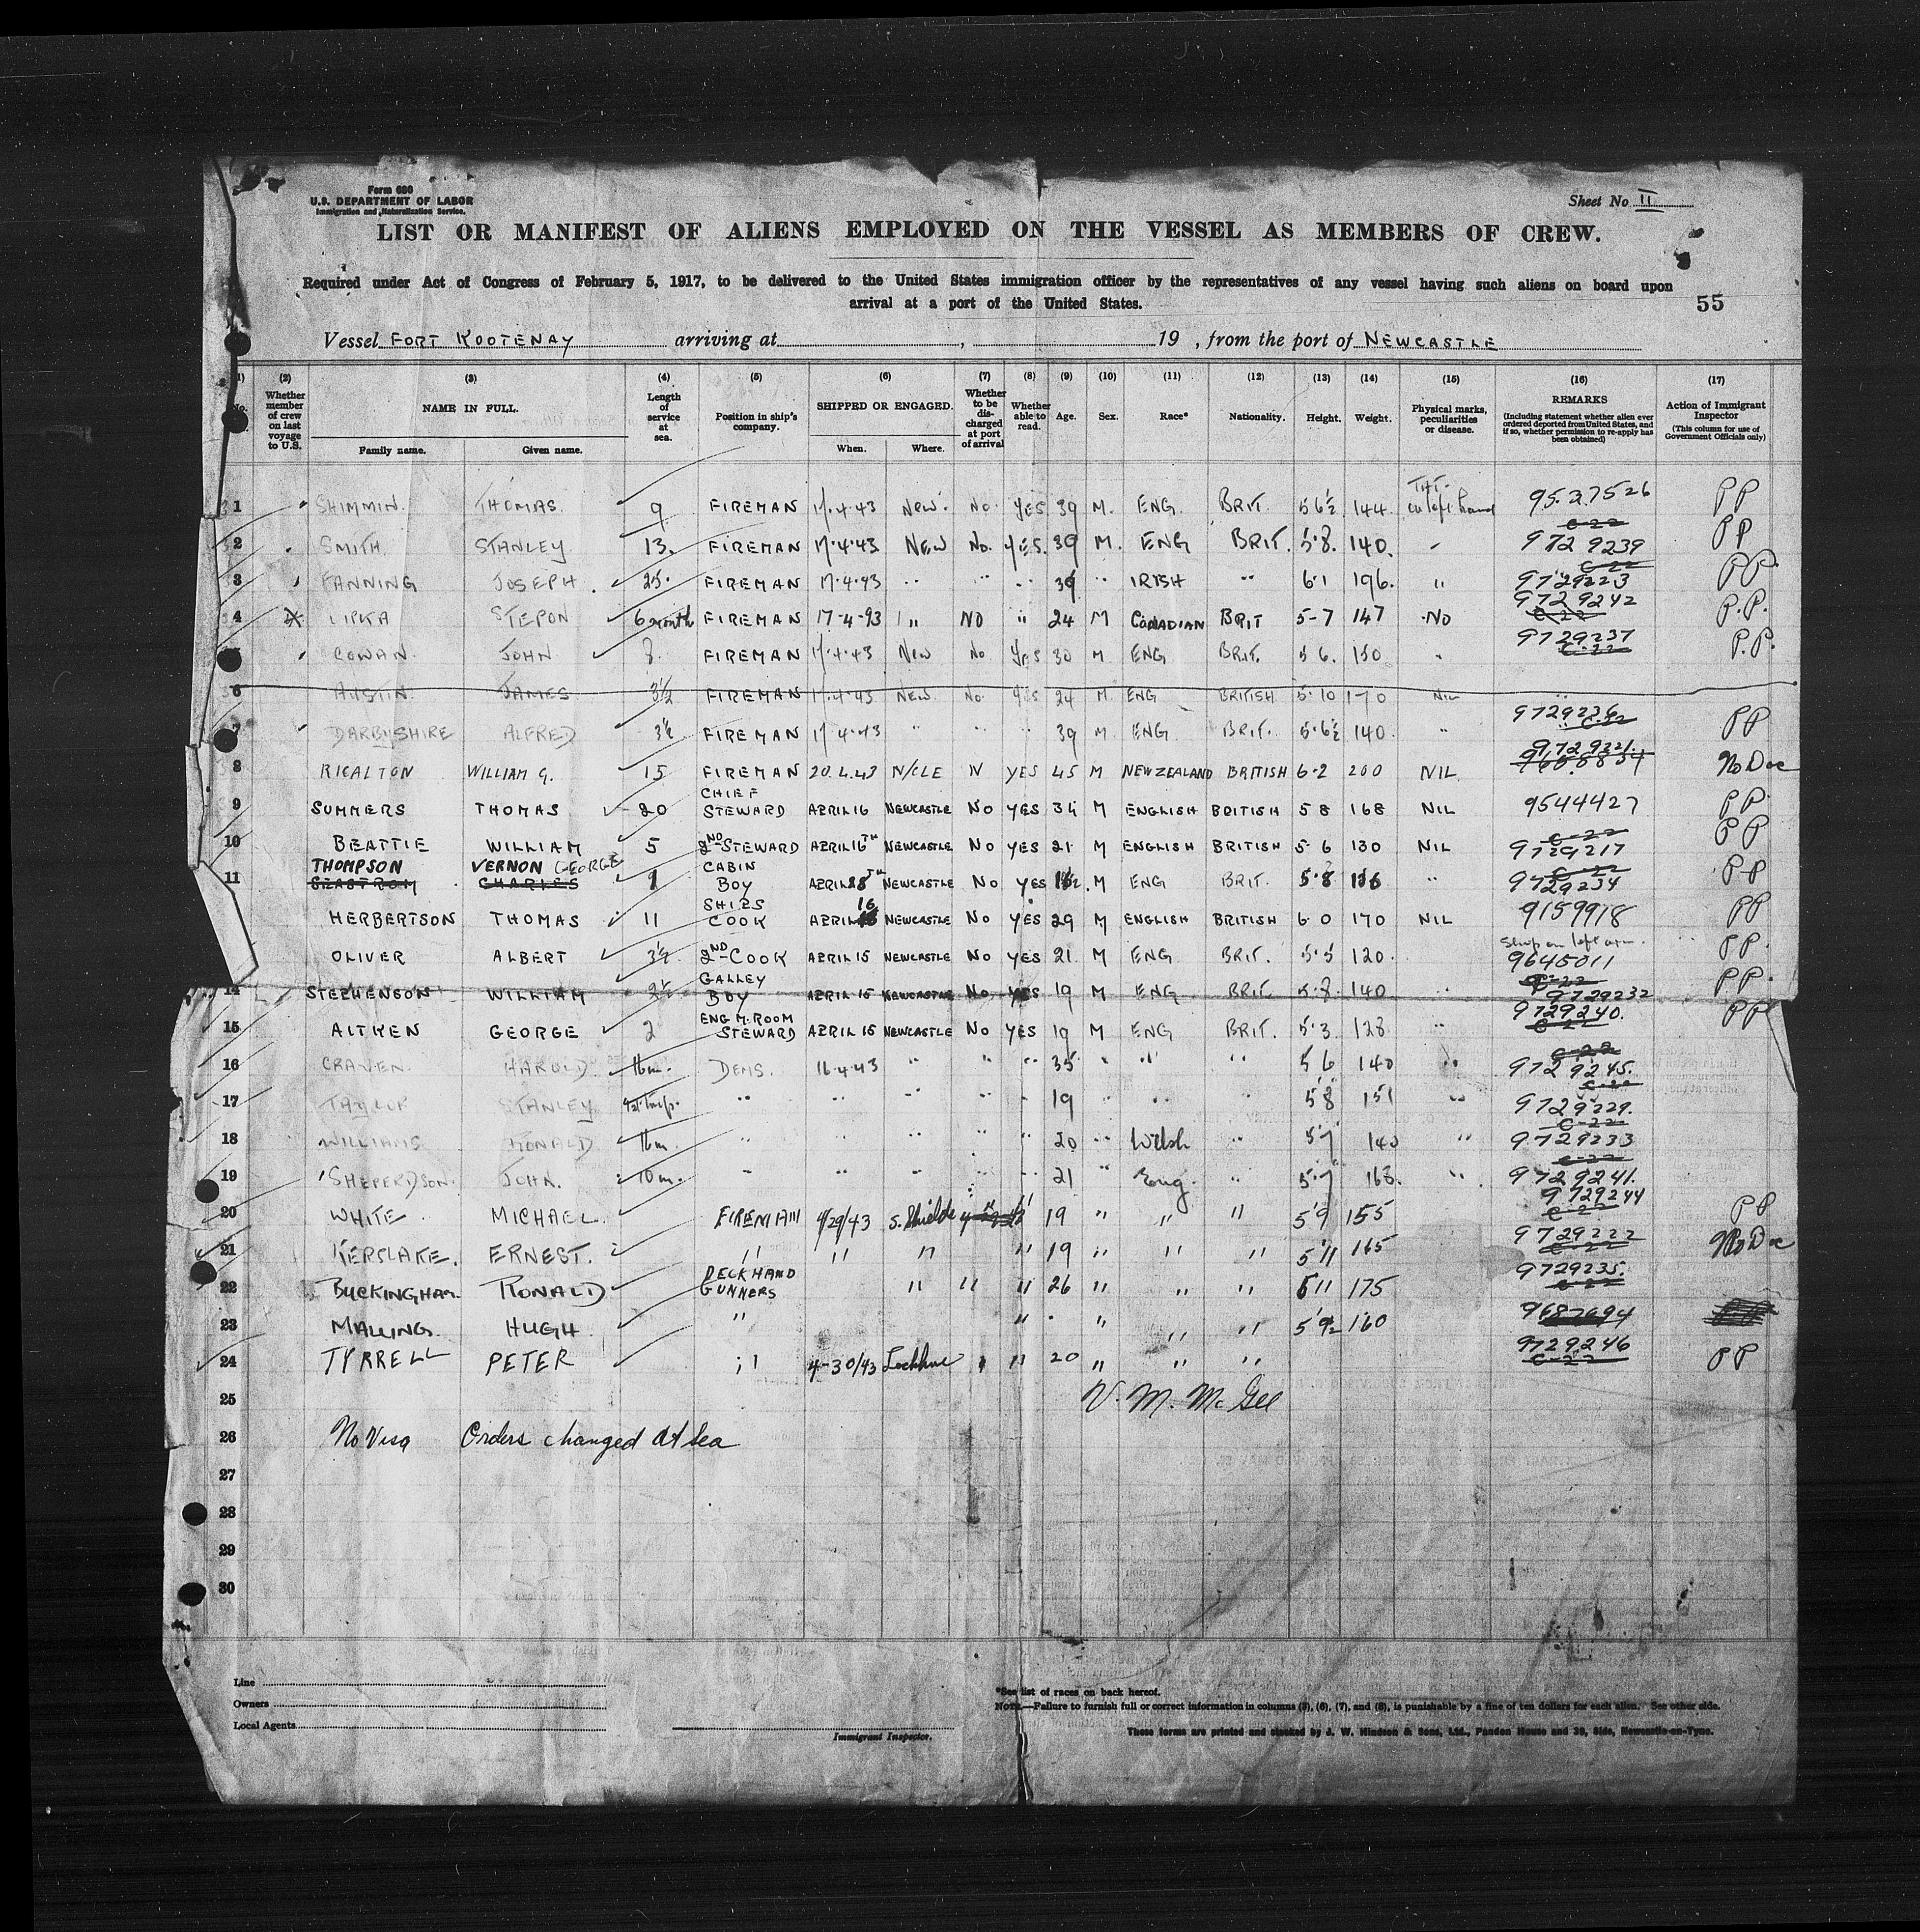 Form 680
U.S. DEPARTMENT OF LABOR
Immigration and Naturalization Service.
Sheet No. II
LIST OR MANIFEST OF ALIENS EMPLOYED ON THE VESSEL AS MEMBERS OF CREW.
Required under Act of Congress of February 5, 1917, to be delivered to the United States immigration officer by the representatives of any vessel having such aliens on board upon
arrival at a port of the United States.
55
Vessel FORT KOOTENAY arriving at , 19 , from the port of NEWCASTLE
(1) (2) (3) (4) (5) (6) (7) (8) (9) (10) (11) (12) (13) (14) (15) (16) (17)
No. Whether member of crew on last voyage to U.S. NAME IN FULL. Length of service at sea. Position in ship's company. SHIPPED OR ENGAGED. Whether to be discharged at port of arrival Whether able to read. Age. Sex. Race* Nationality. Height. Weight. Physical marks, peculiarities or disease. REMARKS (Including statement whether alien ever ordered deported from United States, and if so, whether permission to re-apply has been obtained) Action of Immigrant Inspector (This column for use of Government Officials only)
Family name. Given name. When. Where.
1 SHIMMIN. THOMAS. 9 FIREMAN 17.4.43 NEW. No. YES 39 M. ENG. BRIT. 5 6½ 144. on left hand 9527526 PP
2 SMITH STANLEY 13. FIREMAN 17.4.43 NEW No. YES. 39 M. ENG BRIT. 5.8. 140. C-22 972 9239 PP
3 FANNING JOSEPH. 25. FIREMAN 17.4.43 " " " 39 " IRISH " 6.1 196. " C-22 9729223 PP
4 LIPKA STEPON 6 month FIREMAN 17-4-43 " NO " 24 M CANADIAN BRIT 5-7 147 NO 9729242 C-22 P.P.
COWAN. JOHN 8. FIREMAN 17.4.43 NEW No YES 30 M. ENG BRIT. 5 6. 150 " 9729237 C-22 P.P.
6 AUSTIN. JAMES 3½ FIREMAN 17.4.43 NEW. No. YES 24 M. ENG BRITISH 5.10 170 NIL
7 DARBYSHIRE ALFRED 3½ FIREMAN 17.4.43 " " " 39 M. ENG. BRIT. 5.6½ 140. " 9729236 C-22 PP
8 RICALTON WILLIAM G. 15 FIREMAN 20.4.43 N/CLE N YES 45 M NEWZEALAND BRITISH 6-2 200 NIL 9729221. No Doc
9 SUMMERS THOMAS 20 CHIEF STEWARD APRIL 16 NEWCASTLE NO YES 34 M ENGLISH BRITISH 5 8 168 NIL 9544427 PP.
10 BEATTIE WILLIAM 5 2ND STEWARD APRIL 16TH NEWCASTLE NO YES 21 M ENGLISH BRITISH 5 6 130 NIL C-22 9729217 PP
11 THOMPSON VERNON GEORGE CHARLES CABIN BOY APRIL 28TH NEWCASTLE NO YES M ENG BRIT. 5.8 " C-22 9729234 PP
HERBERTSON THOMAS 11 SHIPS COOK APRIL 16 NEWCASTLE NO YES 29 M ENGLISH BRITISH 6 0 170 NIL 9159918 PP
OLIVER ALBERT 3½ 2ND COOK APRIL 15 NEWCASTLE NO YES 21 M ENG BRIT. 5.5 120. on left arm. 9645011 PP.
14 STEPHENSON WILLIAM 2½ GALLEY BOY APRIL 15 NEWCASTLE NO YES 19 M ENG BRIT. 5.8. 140 " C-22 9729232 PP.
15 AITKEN GEORGE 2 ENG M. ROOM STEWARD APRIL 15 NEWCASTLE NO YES 19 M ENG BRIT. 5.3. 128 " 9729240. C-22 PP
16 CRAVEN. HAROLD. 16m. DEMS. 16.4.43 " " " 35 " " " 5 6 140 " C-22 9729245.
17 TAYLOR STANLEY " " " " 19 " " " 5'8 151 " C-22 9729229.
18 WILLIAMS RONALD 16m. " " " " " 20 " Welsh " 5'7 140 " C-22 9729233
19 SHEPERDSON. JOHN. 10m. " " " " " 21 " Eng. " 5.7 168. " C-22 9729241.
20 WHITE. MICHAEL. FIREMAN 4/29/43 S. Shields 19 " " " 5'9 155 9729244 C-22 PP
21 KERSLAKE. ERNEST. " " " " 19 " " " 5'11 165 9729222 C-22 No Doc
22 BUCKINGHAM RONALD DECKHAND GUNNERS " " " 26 " " " 5'11 175 9729235. C-22
23 MALLING. HUGH. " " " " " 5'9½ 160 9687694
24 TYRRELL PETER " 4-30/43 " " 20 " " " 9729246 C-22 PP
25 V. M. McGee
26 No Visa Orders changed at Sea
27
28
29
30
Line
Owners
Local Agents
Immigrant Inspector.
*See list of races on back hereof.
NOTE.—Failure to furnish full or correct information in columns (3), (6), (7), and (8), is punishable by a fine of ten dollars for each alien. See other side.
These forms are printed and stocked by J. W. Hindson & Sons, Ltd., Pandon House and 39, Side, Newcastle-on-Tyne.